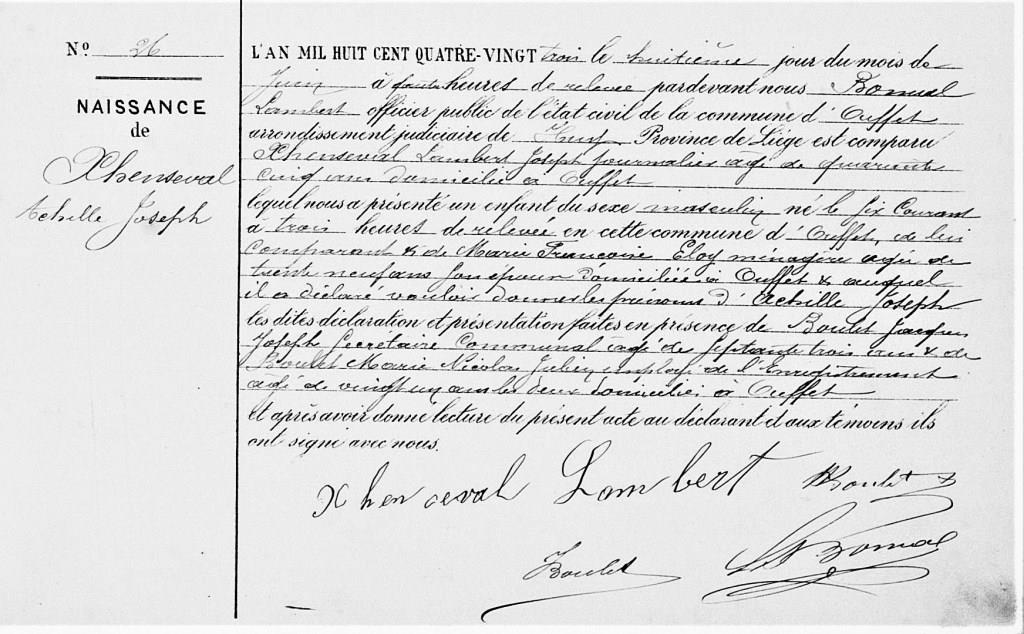 Nº 26
NAISSANCE
de
Xhenseval
Achille Joseph
L'AN MIL HUIT CENT QUATRE-VINGT trois le huitième jour du mois de
Juin à heures de relevée pardevant nous Bonmal
Lambert officier public de l'état civil de la commune d'Ouffet
arrondissement judiciaire de Huy Province de Liége est comparu
Xhenseval Lambert Joseph journalier agé de quarante
cinq ans domicilié à Ouffet
lequel nous a présenté un enfant du sexe masculin né le six Courant
à trois heures de relevée en cette commune d'Ouffet, de lui
comparant & de Marie Francoise Eloy ménagère agée de
trente neuf ans son epouse domiciliée à Ouffet & auquel
il a déclaré vouloir donner les prenoms d'Achille Joseph
les dites déclaration et présentation faites en présence de Boulet Jacques
Joseph Secretaire Communal agé de septante trois ans & de
Boulet Marie Nicolas Julien employé de l'Enregistrement
agé de vingt un ans les deux domiciliés à Ouffet
et après avoir donné lecture du présent acte au déclarant et aux témoins ils
ont signé avec nous.
Xhenceval Lambert Boulet
Boulet Bonmal